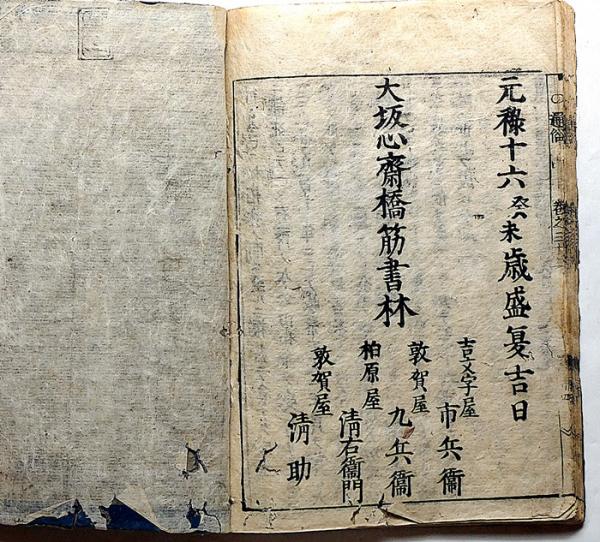 元祿十六癸未歳盛夏吉日
大坂心齋橋筋書林
吉文字屋 市兵衞
敦賀屋 九兵衞
柏原屋 清右衞門
敦賀屋 清助
通俗
卷之三